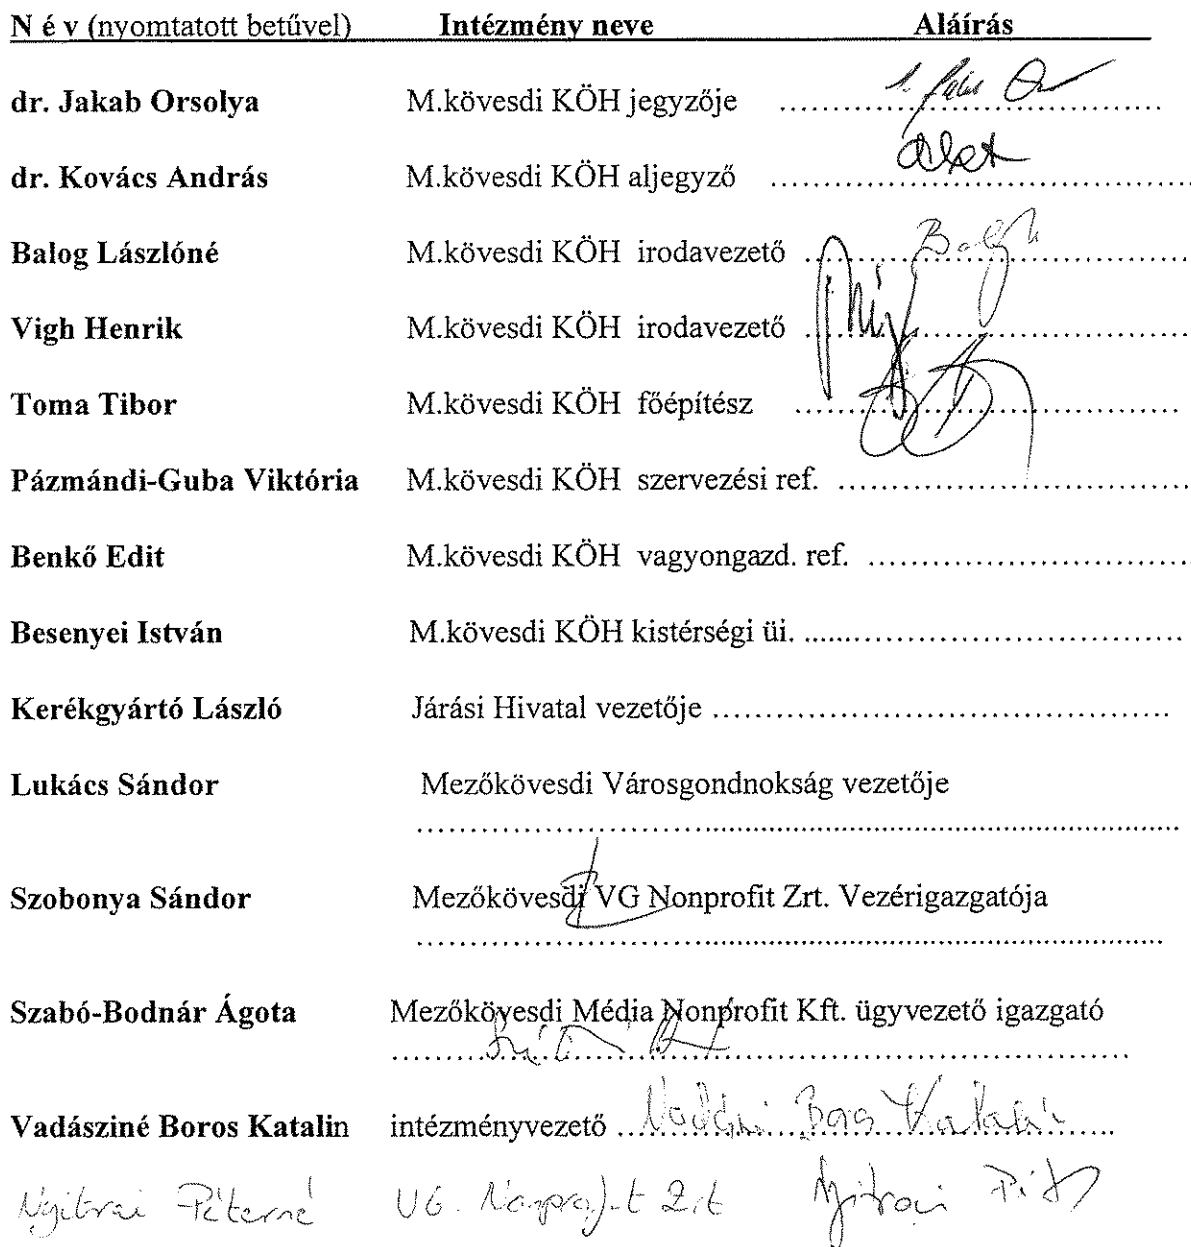 N é v (nyomtatott betűvel) Intézmény neve Aláírás
dr. Jakab Orsolya M.kövesdi KÖH jegyzője ........................................
dr. Kovács András M.kövesdi KÖH aljegyző ........................................
Balog Lászlóné M.kövesdi KÖH irodavezető ........................................ Balogh
Vigh Henrik M.kövesdi KÖH irodavezető ........................................
Toma Tibor M.kövesdi KÖH főépítész ........................................
Pázmándi-Guba Viktória M.kövesdi KÖH szervezési ref. ........................................
Benkő Edit M.kövesdi KÖH vagyongazd. ref. ........................................
Besenyei István M.kövesdi KÖH kistérségi üi. ........................................
Kerékgyártó László Járási Hivatal vezetője ........................................
Lukács Sándor Mezőkövesdi Városgondnokság vezetője
........................................
Szobonya Sándor Mezőkövesdi VG Nonprofit Zrt. Vezérigazgatója
........................................
Szabó-Bodnár Ágota Mezőkövesdi Média Nonprofit Kft. ügyvezető igazgató
........................................
Vadásziné Boros Katalin intézményvezető ........................................ Vadásziné Boros Katalin
Nyitrai Péterné VG. Nonprofit Zrt Nyitrai Pét